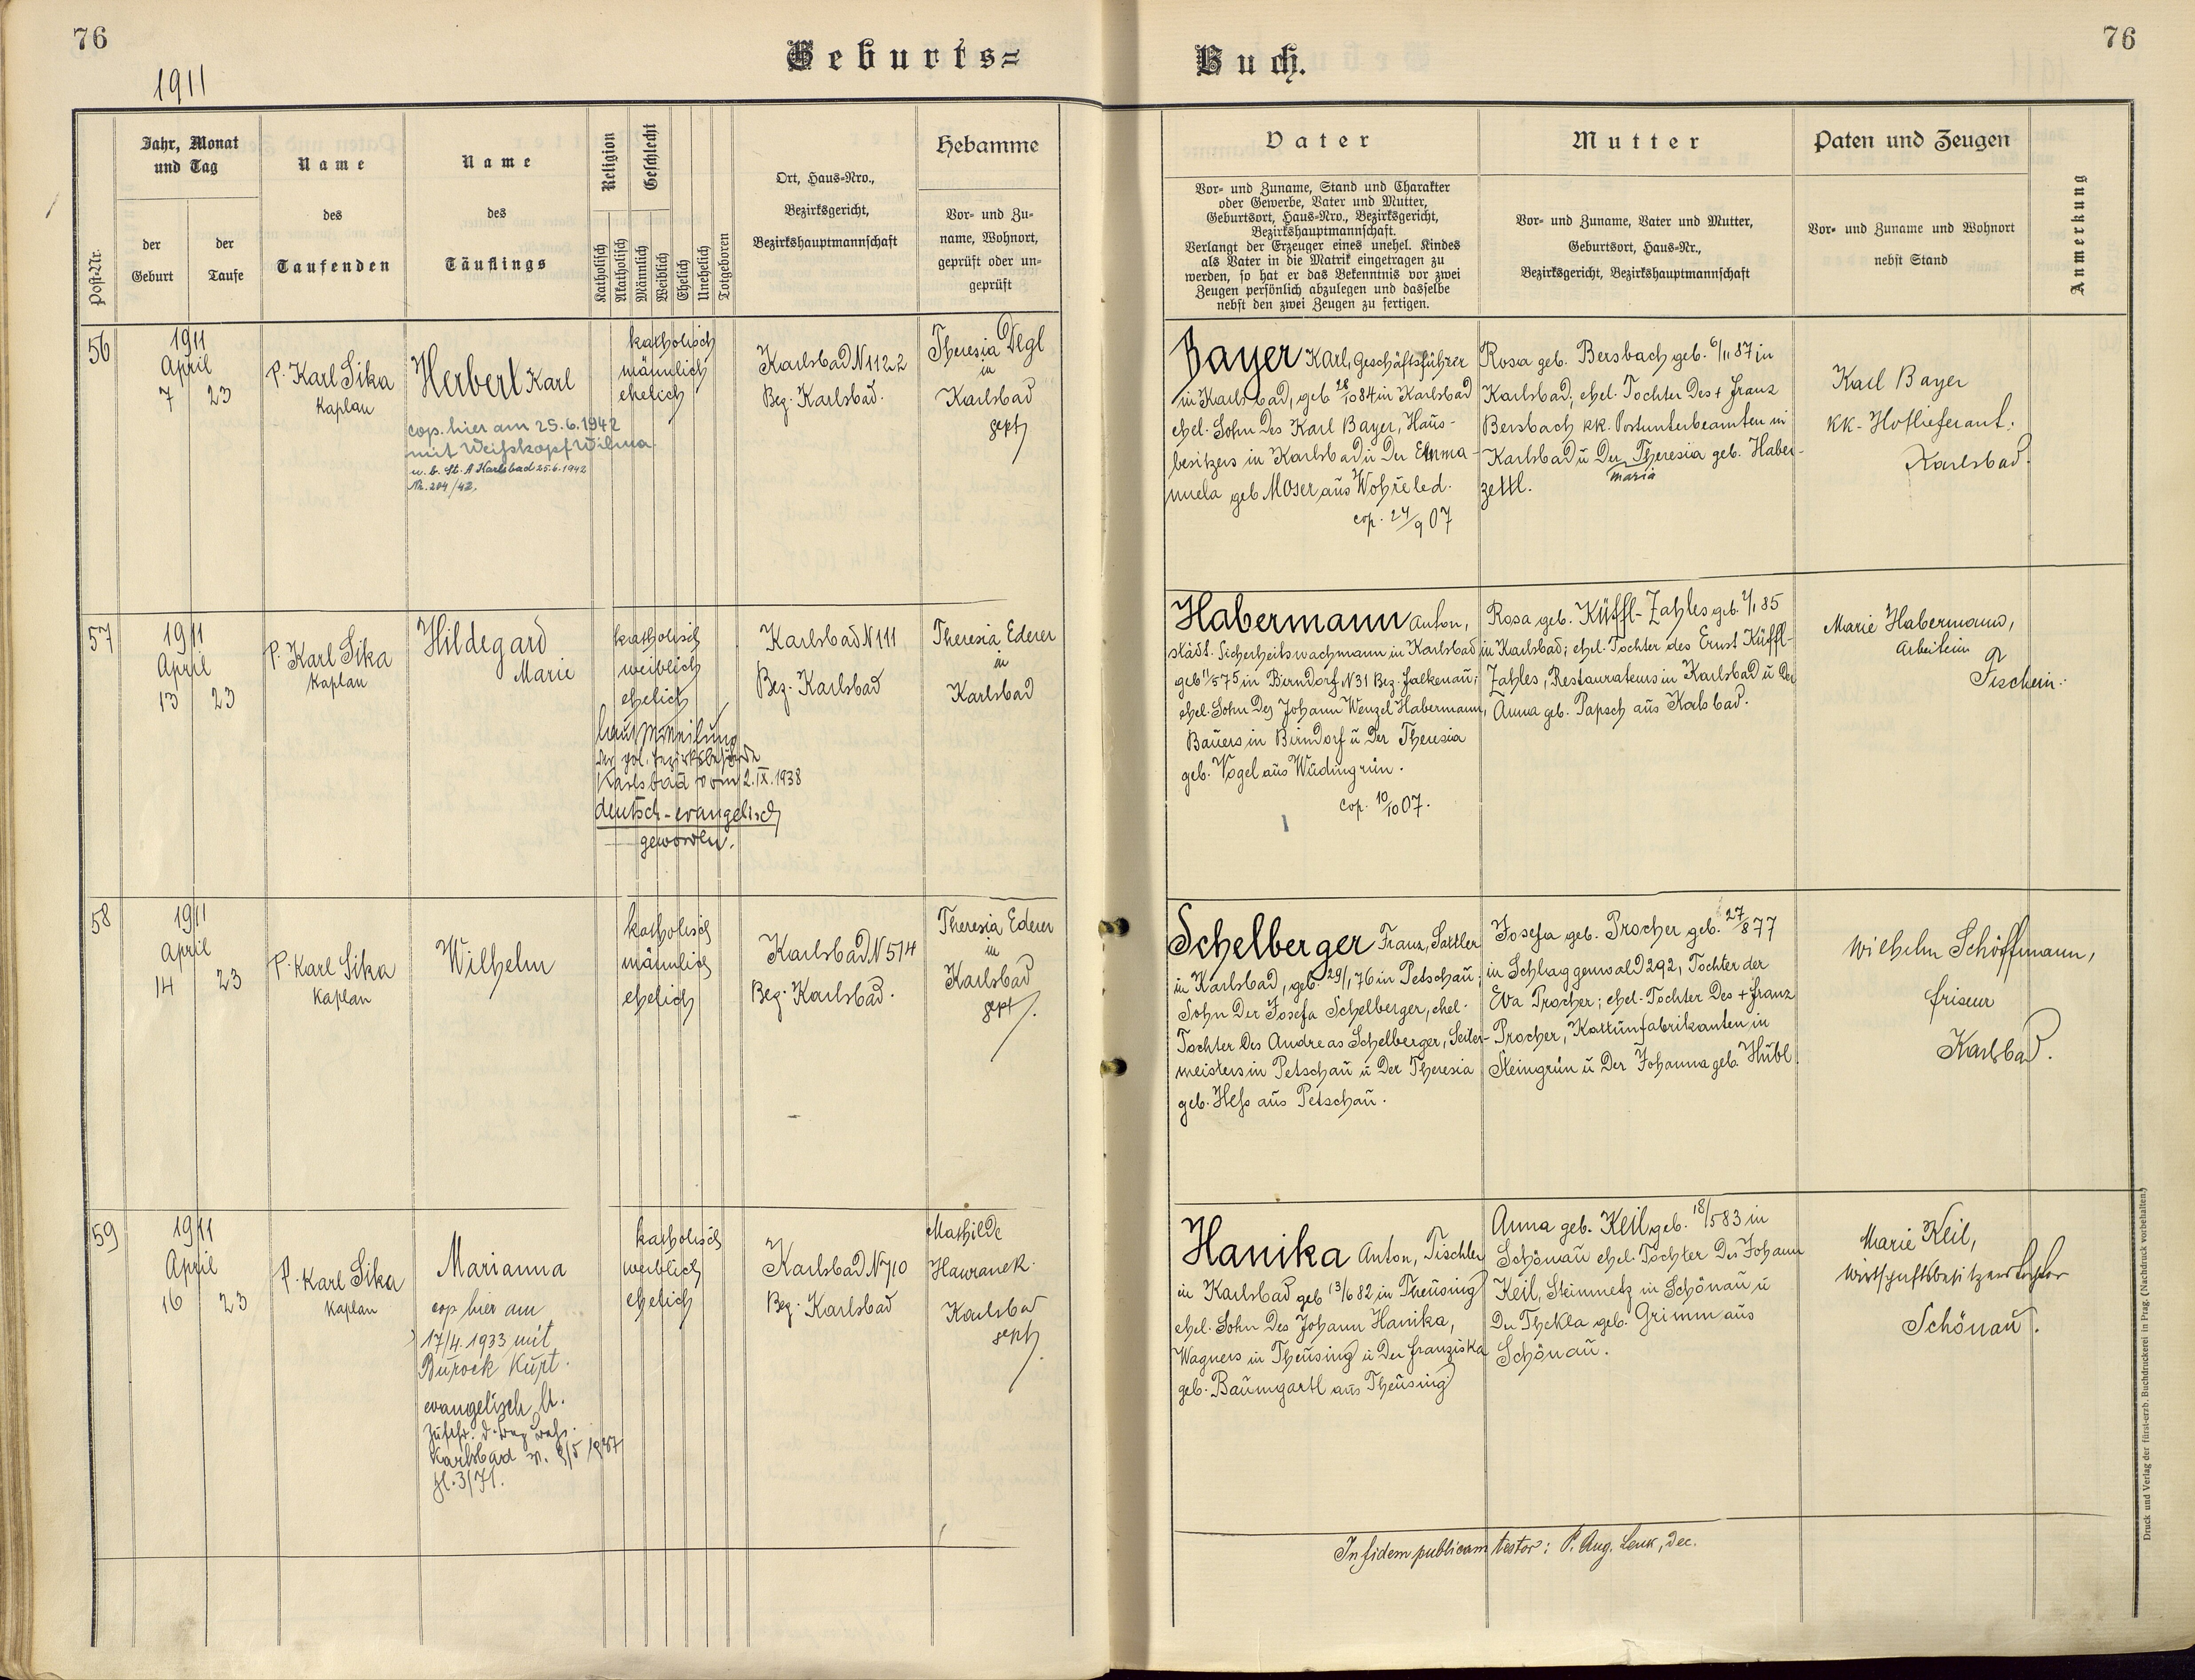 76
1911
Geburts=
Post-Nr.
Jahr, Monat
und Tag
der
Geburt
der
Taufe
Name
des
Taufenden
Name
des
Täuflings
Religion
Katholisch
Akatholisch
Geschlecht
Männlich
Weiblich
Ehelich
Unehelich
Totgeboren
Ort, Haus-Nro.,
Bezirksgericht,
Bezirkshauptmannschaft
Hebamme
Vor- und Zu-
name, Wohnort,
geprüft oder un-
geprüft
56
1911
April
7 23
P. Karl Sika
Kaplan
Herbert Karl
cop. hier am 25.6.1942
mit Weißkopf Wilma.
u. b. St. A Karlsbad 25.6.1942
Nr. 204/42.
katholisch
männlich
ehelich
Karlsbad N 1122
Bez. Karlsbad.
Theresia Degl
in
Karlsbad
gept
57
1911
April
13 23
P. Karl Sika
Kaplan
Hildegard
Marie
katholisch
weiblich
ehelich
laut Mitteilung
der pol. Bezirksbehörde
Karlsbad vom 2.IX.1938
deutsch-evangelisch
geworden.
Karlsbad N 111
Bez. Karlsbad
Theresia Ederer
in
Karlsbad
58
1911
April
14 23
P. Karl Sika
Kaplan
Wilhelm
katholisch
männlich
ehelich
Karlsbad N 514
Bez. Karlsbad.
Theresia Ederer
in
Karlsbad
gept.
59
1911
April
16 23
P. Karl Sika
Kaplan
Marianna
cop hier am
17/4. 1933 mit
Burock Kurt.
evangelisch lt.
Zuschr. d.
Karlsbad v. 3/5 1937
zl. 3/71.
katholisch
weiblich
ehelich
Karlsbad N 710
Bez. Karlsbad
Mathilde
Hawranek
Karlsbad
gept.
Buch.
76
Vater
Vor- und Zuname, Stand und Charakter
oder Gewerbe, Vater und Mutter,
Geburtsort, Haus-Nro., Bezirksgericht,
Bezirkshauptmannschaft.
Verlangt der Erzeuger eines unehel. Kindes
als Vater in die Matrik eingetragen zu
werden, so hat er das Bekenntnis vor zwei
Zeugen persönlich abzulegen und dasselbe
nebst den zwei Zeugen zu fertigen.
Mutter
Vor- und Zuname, Vater und Mutter,
Geburtsort, Haus-Nr.,
Bezirksgericht, Bezirkshauptmannschaft
Paten und Zeugen
Vor- und Zuname und Wohnort
nebst Stand
Anmerkung
Bayer Karl, Geschäftsführer
in Karlsbad, geb 28/10 84 in Karlsbad
ehel. Sohn des Karl Bayer, Haus-
besitzers in Karlsbad u der Emma-
nuela geb Moser aus Wohrled.
cop. 24/9 07
Rosa geb. Bersbach geb. 6/11 87 in
Karlsbad; ehel. Tochter des + Franz
Bersbach kk. Postunterbeamten in
Karlsbad u der Theresia geb. Haber-
maria
zettl.
Karl Bayer
kk. Hoflieferant.
Karlsbad.
Habermann Anton,
städt. Sicherheitswachmann in Karlsbad
geb 11/5 75 in Birndorf N 31 Bez. Falkenau;
ehel. Sohn des Johann Wenzel Habermann,
Bauers in Birndorf u der Theresia
geb. Vogel aus Wudingrün.
cop. 10/10 07.
Rosa geb. Küffl-Zahles geb. 1/1 85
in Karlsbad; ehel. Tochter des Ernst Küffl-
Zahles, Restaurateurs in Karlsbad u der
Anna geb. Papsch aus Karlsbad.
Marie Habermann,
Arbeiterin
Tischein.
Schelberger Franz, Sattler
in Karlsbad, geb. 29/1 76 in Petschau;
Sohn der Josefa Schelberger, ehel.
Tochter des Andreas Schelberger, Seiler-
meisters in Petschau u der Theresia
geb. Heß aus Petschau.
Josefa geb. Procher geb. 27/8 77
in Schlaggenwald 292, Tochter der
Eva Procher; ehel. Tochter des + Franz
Procher, Kattunfabrikanten in
Steingrün u der Johanna geb. Hübl.
Wilhelm Schöffmann,
Friseur
Karlsbad.
Hanika Anton, Tischler
in Karlsbad geb 13/6 82 in Theusing
ehel. Sohn des Johann Hanika,
Wagners in Theusing u der Franziska
geb. Baumgartl aus Theusing
Anna geb. Keil geb. 18/5 83 in
Schönau ehel. Tochter des Johann
Keil, Steinmetz in Schönau u
der Thekla geb. Grimm aus
Schönau.
Marie Keil,
Wirtschaftsbesitzerstochter
Schönau.
In fidem publicam testor: P. Aug. Lenk, Dec.
Druck und Verlag der fürst-erzb. Buchdruckerei in Prag. (Nachdruck vorbehalten.)